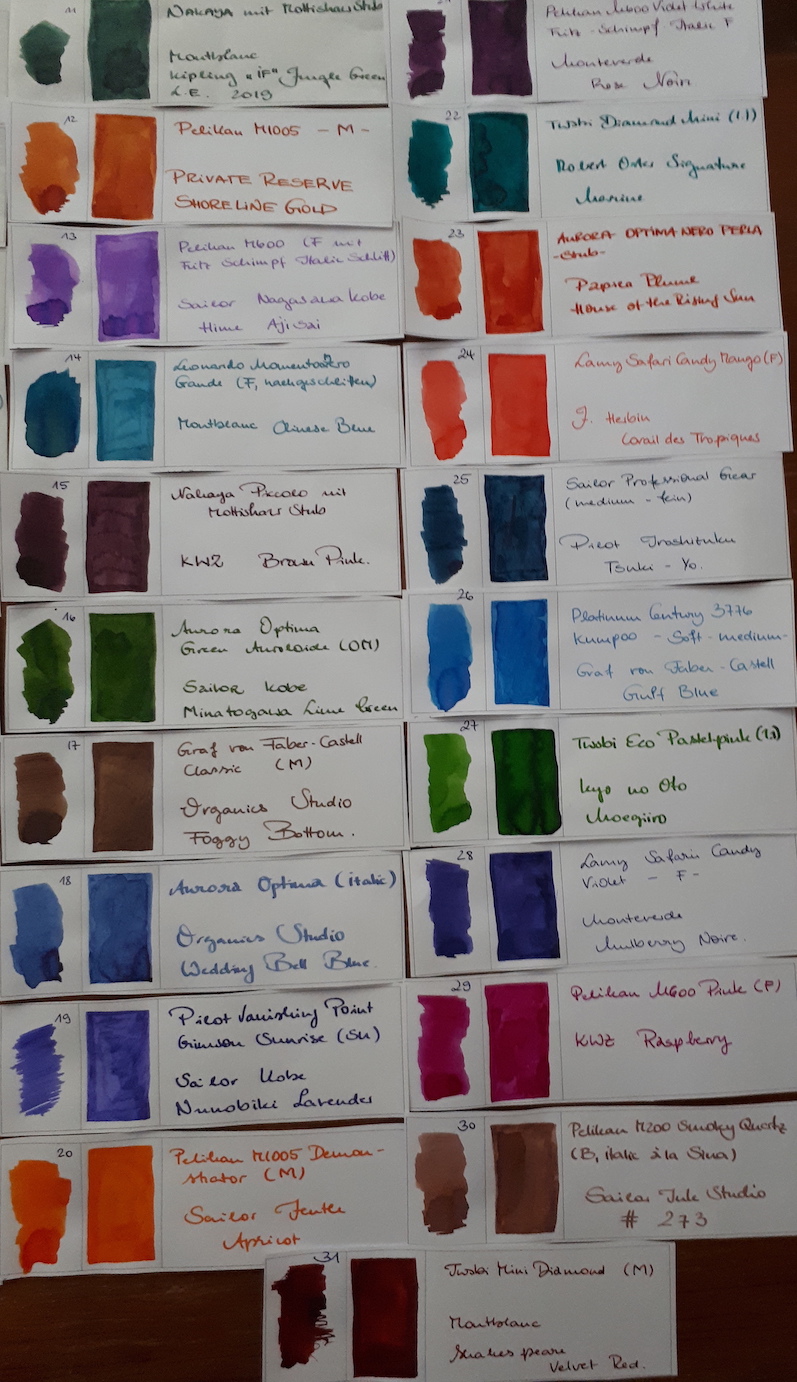 11
NAKAYA mit Mottishaw Stub
Montblanc
Kipling "IF" Jungle Green
L.E. 2019
12
Pelikan M1005 - M -
PRIVATE RESERVE
SHORELINE GOLD
13
Pelikan M600 (F mit
Fritz Schimpf Italic Schliff)
Sailor Nagasawa Kobe
Hime Ajisai
14
Leonardo Momento Zero
Grande (F, nachgeschliffen)
Montblanc Chinese Blue
15
Nakaya Piccolo mit
Mottishaw Stub
KWZ Brown Pink.
16
Aurora Optima
Green Auroloide (OM)
Sailor Kobe
Minatogawa Lime Green
17
Graf von Faber-Castell
Classic (M)
Organics Studio
Foggy Bottom.
18
Aurora Optima (italic)
Organics Studio
Wedding Bell Blue.
19
Pilot Vanishing Point
Crimson Sunrise (SU)
Sailor Kobe
Nunobiki Lavender
20
Pelikan M1005 Demon-
strator (M)
Sailor Jentle
Apricot
Pelikan M600 Violet White
Fritz - Schimpf Italic F
Monteverde
Rose Noir
22
Twsbi Diamond Mini (1.1)
Robert Oster Signature
Marine
23
AURORA OPTIMA NERO PERLA
-Stub-
Papier Plume
House of the Rising Sun
24
Lamy Safari Candy Mango (F)
J. Herbin
Corail des Tropiques
25
Sailor Professional Gear
(medium - fein)
Pilot Iroshizuku
Tsuki - Yo.
26
Platinum Century 3776
Kumpoo - Soft - medium -
Graf von Faber-Castell
Gulf Blue
27
Twsbi Eco Pastellpink (1.1)
Kyo no Oto
Moegiiro
28
Lamy Safari Candy
Violet - F -
Monteverde
Mulberry Noire.
29
Pelikan M600 Pink (F)
KWZ Raspberry
30
Pelikan M200 Smoky Quartz
(B, italic à la Sina)
Sailor Ink Studio
# 273
31
Twsbi Mini Diamond (M)
Montblanc
Shakespeare
Velvet Red.